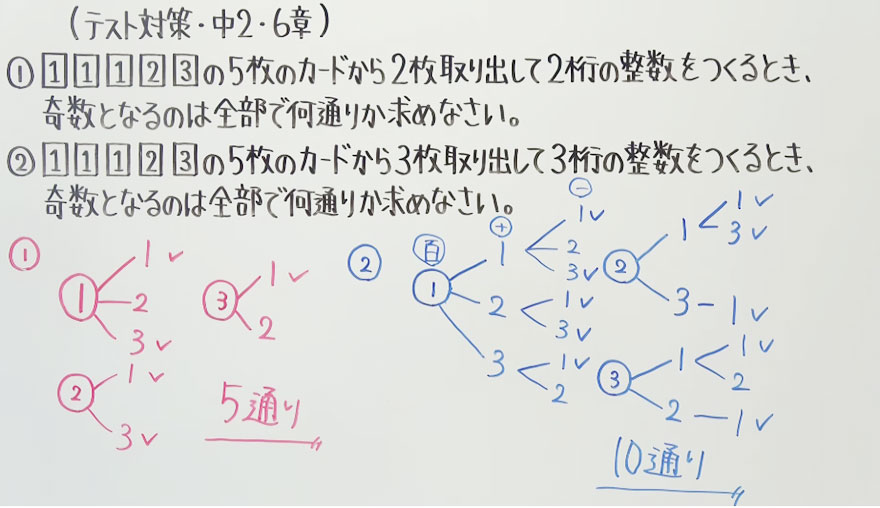 (テスト対策・中2・6章)
① 1 1 1 2 3 の5枚のカードから2枚取り出して2桁の整数をつくるとき、
奇数となるのは全部で何通りか求めなさい。
② 1 1 1 2 3 の5枚のカードから3枚取り出して3桁の整数をつくるとき、
奇数となるのは全部で何通りか求めなさい。
①
① 1 ✓
2
3 ✓
③ 1 ✓
2
② 1 ✓
3 ✓
5通り
②
百 ⊕ ⊖
① 1 1 ✓
2
3 ✓
2 1 ✓
3 ✓
3 1 ✓
2
② 1 1 ✓
3 ✓
3 - 1 ✓
③ 1 1 ✓
2
2 - 1 ✓
10通り